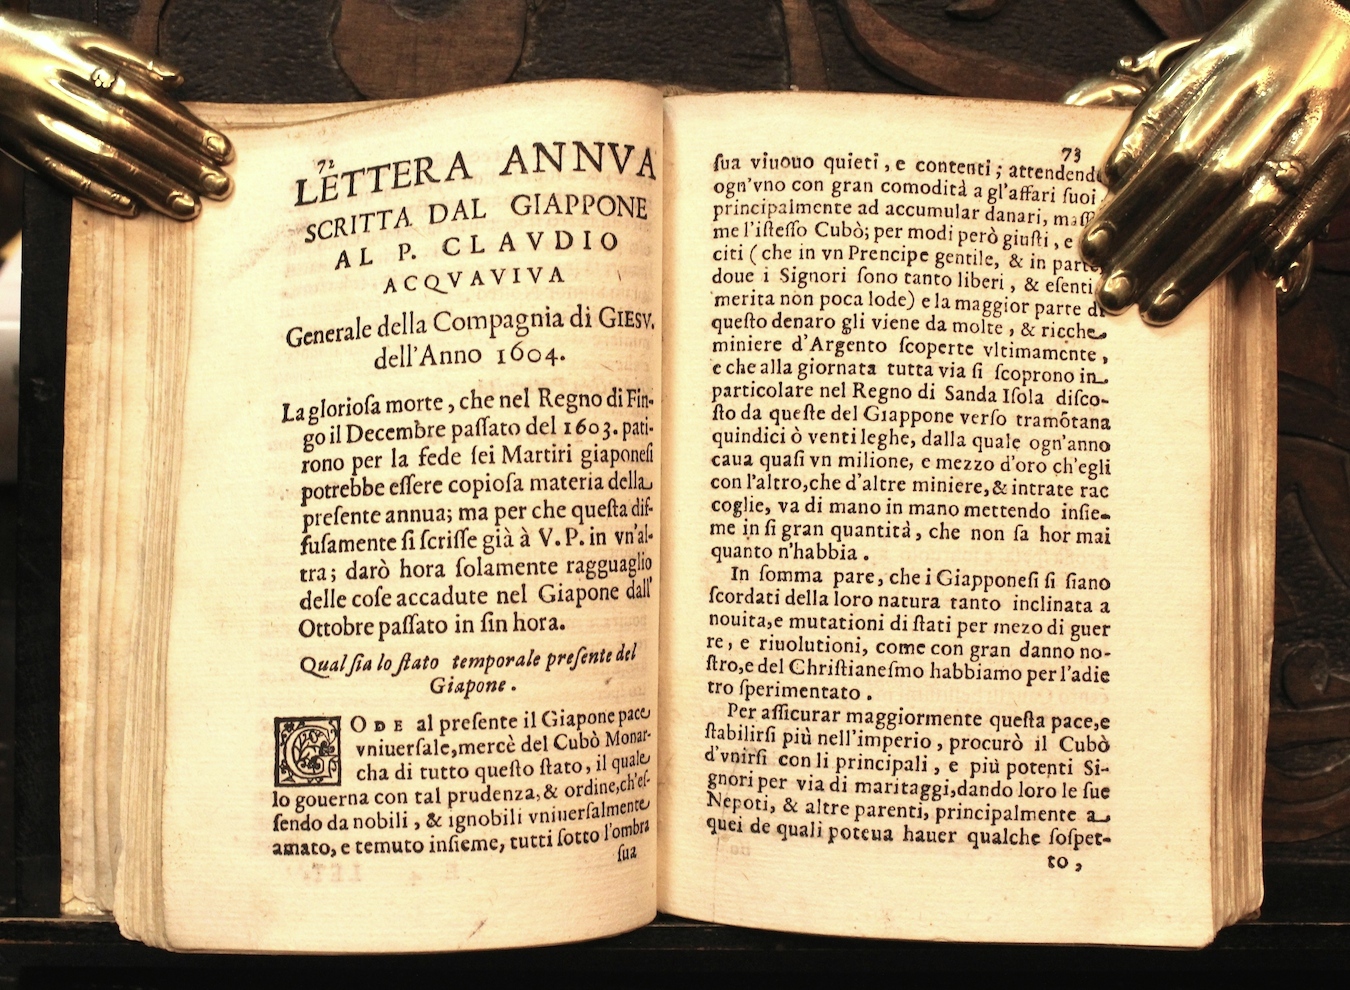 72
LETTERA ANNVA
SCRITTA DAL GIAPPONE
AL P. CLAVDIO
ACQVAVIVA
Generale della Compagnia di GIESV.
dell'Anno 1604.
La glorioſa morte, che nel Regno di Fin-
go il Decembre paſſato del 1603. pati-
rono per la fede ſei Martiri giaponeſi
potrebbe eſſere copioſa materia della
preſente annua; ma per che queſta dif-
fuſamente ſi ſcriſſe già à V. P. in vn'al-
tra; darò hora ſolamente ragguaglio
delle coſe accadute nel Giapone dall'
Ottobre paſſato in ſin hora.
Qual ſia lo ſtato temporale preſente del
Giapone.
GODE al preſente il Giapone pace
vniuerſale, mercè del Cubò Monar-
cha di tutto queſto ſtato, il quale
lo gouerna con tal prudenza, & ordine, ch'eſ-
ſendo da nobili, & ignobili vniuerſalmente
amato, e temuto inſieme, tutti ſotto l'ombra
ſua
73
ſua viuouo quieti, e contenti; attendendo
ogn'vno con gran comodità a gl'affari ſuoi
principalmente ad accumular danari,
me l'iſteſſo Cubò; per modi però giuſti, e
citi (che in vn Prencipe gentile, & in parte
doue i Signori ſono tanto liberi, & eſenti
merita non poca lode) e la maggior parte di
queſto denaro gli viene da molte, & ricche
miniere d'Argento ſcoperte vltimamente,
e che alla giornata tutta via ſi ſcoprono in
particolare nel Regno di Sanda Iſola diſco-
ſto da queſte del Giappone verſo tramōtana
quindici ò venti leghe, dalla quale ogn'anno
caua quaſi vn milione, e mezzo d'oro ch'egli
con l'altro, che d'altre miniere, & intrate rac
coglie, va di mano in mano mettendo inſie-
me in ſi gran quantità, che non ſa hor mai
quanto n'habbia.
In ſomma pare, che i Giapponeſi ſi ſiano
ſcordati della loro natura tanto inclinata a
nouita, e mutationi di ſtati per mezo di guer
re, e riuolutioni, come con gran danno no-
ſtro, e del Chriſtianeſmo habbiamo per l'adie
tro ſperimentato.
Per aſſicurar maggiormente queſta pace, e
ſtabilirſi più nell'imperio, procurò il Cubò
d'vnirſi con li principali, e più potenti Si-
gnori per via di maritaggi, dando loro le ſue
Nepoti, & altre parenti, principalmente a
quei de quali poteua hauer qualche ſoſpet-
to,